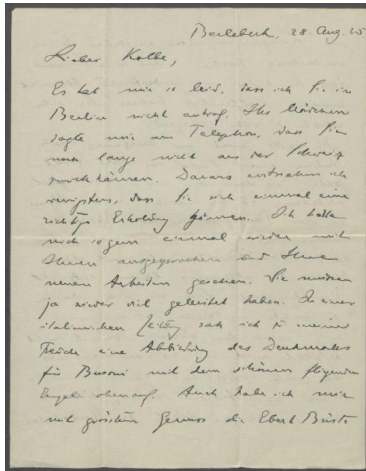 Berlebeck, 28. Aug. 25
Lieber Kolbe,
Es hat mir so leid, dass ich Sie in
Berlin nicht antraf. Ihr Mädchen
sagte mir am Telephon, dass Sie
noch lange nicht aus der Schweiz
zurückkämen. Daraus entnahm ich
wenigstens, dass Sie sich einmal eine
richtige Erholung gönnen. Ich hätte
mich so gern einmal wieder mit
Ihnen ausgesprochen und Ihre
neuen Arbeiten gesehen. Sie müssen
ja wieder viel geleistet haben. In einer
italienischen Zeitung sah ich zu meiner
Freude eine Abbildung des Denkmales
für Busoni mit dem schönen fliegenden
Engel obenauf. Auch habe ich mir
mit grösstem Genuss die Ebert Büste